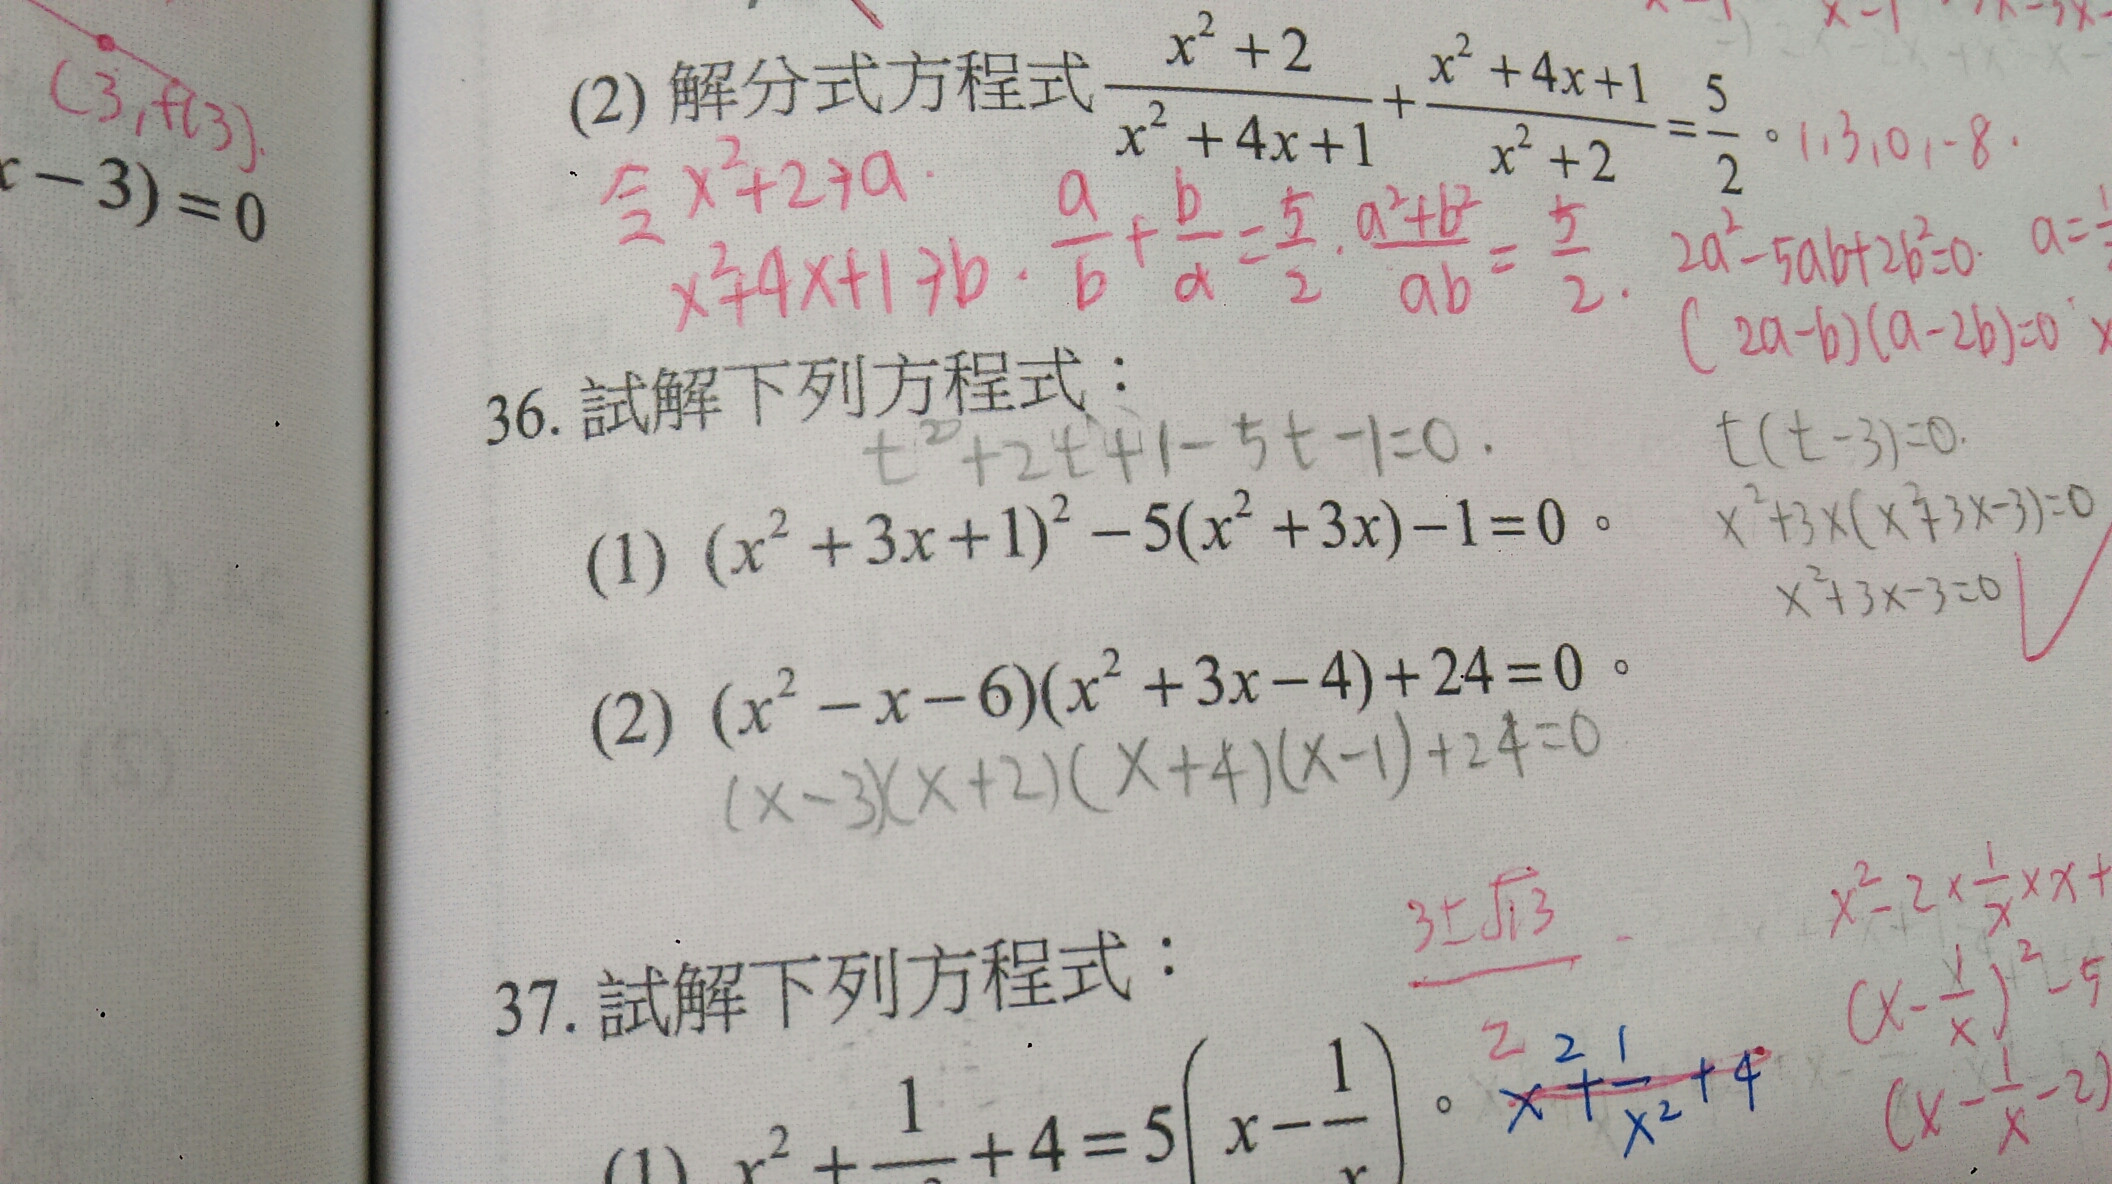 (3, f(3).
x-3)=0
(2) 解分式方程式 \frac{x^2+2}{x^2+4x+1}+\frac{x^2+4x+1}{x^2+2}=\frac{5}{2}。 1,3,0,-8.
令 x^2+2→a. \frac{a}{b}+\frac{b}{a}=\frac{5}{2}. \frac{a^2+b^2}{ab}=\frac{5}{2}. 2a^2-5ab+2b^2=0. a=
x^2+4x+1→b. (2a-b)(a-2b)=0
36. 試解下列方程式：
t^2+2t+1-5t-1=0. t(t-3)=0.
(1) (x^2+3x+1)^2-5(x^2+3x)-1=0。 x^2+3x(x^2+3x-3)=0
x^2+3x-3=0
(2) (x^2-x-6)(x^2+3x-4)+24=0。
(x-3)(x+2)(x+4)(x-1)+24=0
\frac{3±√13}{2} x^2-2×\frac{1}{x}×x+
37. 試解下列方程式：
(x-\frac{1}{x})^2-5
(1) x^2+\frac{1}{}+4=5(x-\frac{1}{x})。 x^2+\frac{1}{x^2}+4 (x-\frac{1}{x}-2)